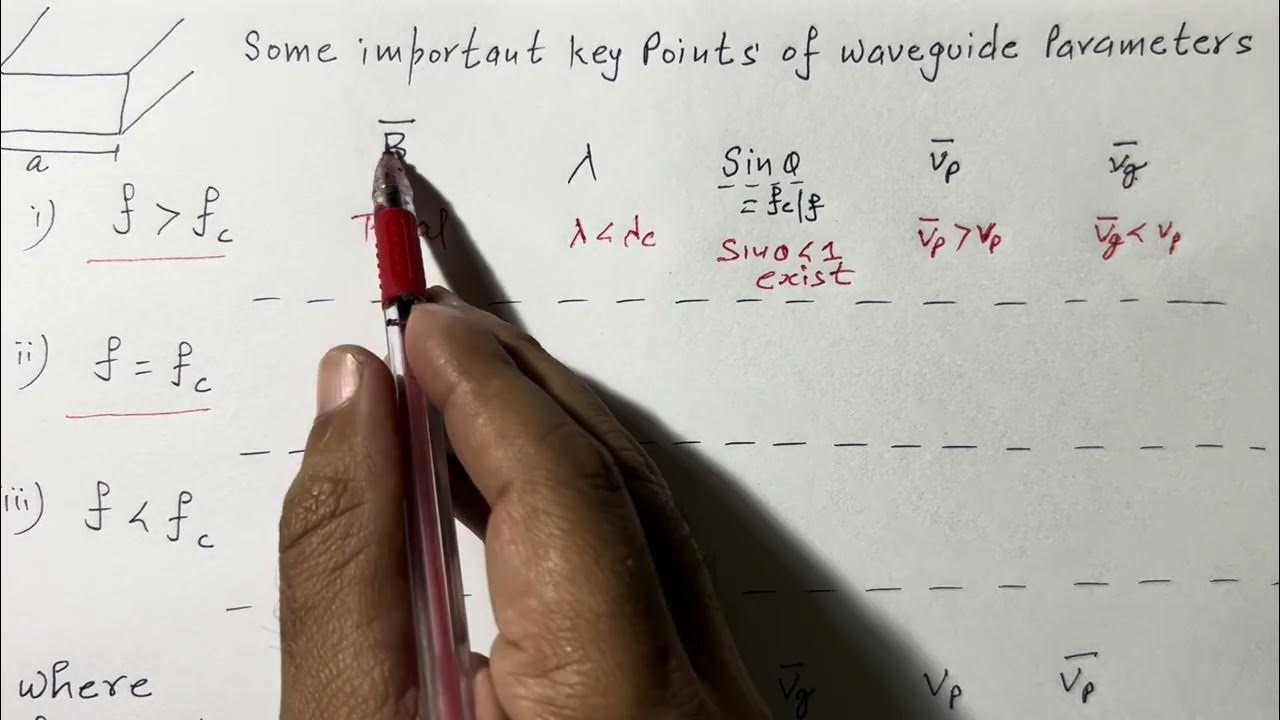 Some important key Points of waveguide Parameters
a
B̅ λ Sin θ v̅p v̅g
= fc/f
i) f > fc λ < λc Sin θ < 1 v̅p > vp v̅g < vp
exist
ii) f = fc
iii) f < fc
where v̅g vp v̅p